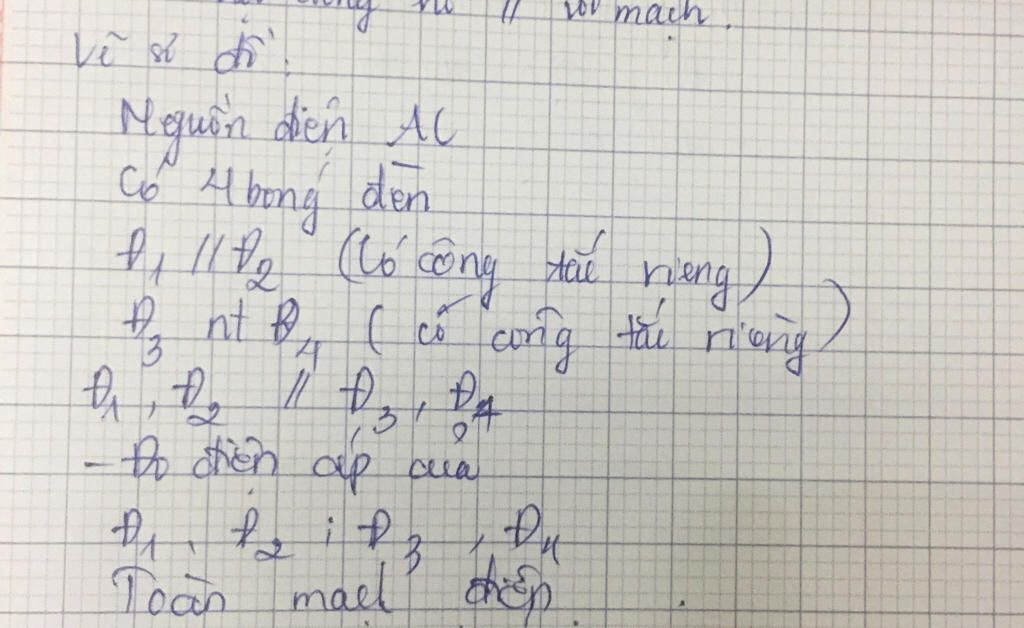 nó // với mạch.
Vẽ sơ đồ.
Nguồn điện AC
Có 4 bóng đèn
Đ1 // Đ2 (Có công tắc riêng)
Đ3 nt Đ4 (có công tắc riêng)
Đ1, Đ2 // Đ3, Đ4
- Đo điện áp của
Đ1, Đ2; Đ3, Đ4
Toàn mạch điện.